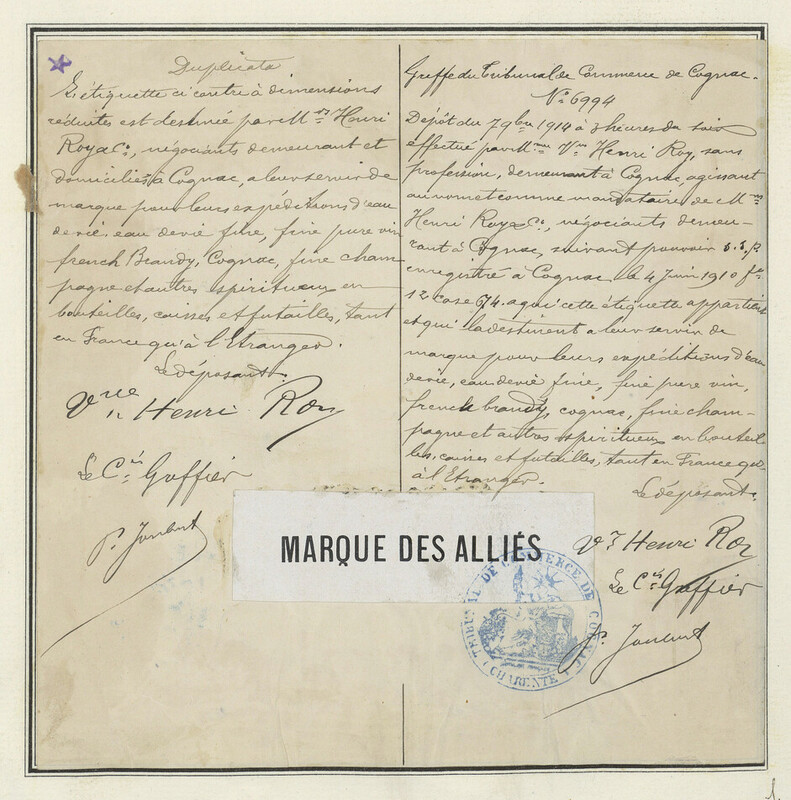 Duplicata
L'étiquette ci contre à dimensions
réduites est destinée par M.rs Henri
Roy & Cie, négociants demeurant et
domiciliés à Cognac, a leur servir de
marque pour leurs expéditions d'eau
de vie, eau de vie fine, fine pure vin
french Brandy, Cognac, fine cham
pagne et autres spiritueux en
bouteilles, caisses et futailles, tant
en France qu'à l'Etranger.
Le déposant.
Vve Henri Roy
Le Cis Greffier
P. Joubert
Greffe du Tribunal de Commerce de Cognac.
No 6994
Dépôt du 7 9bre 1914 à 3 heures du soir
effectué par Mme Vve Henri Roy, sans
profession, demeurant à Cognac, agissant
au nom et comme mandataire de M.rs
Henri Roy & Cie, négociants demeu-
rant à Cognac, suivant pouvoir s.s.p.
enregistré à Cognac le 4 Juin 1910 fo
12 case 674. a qui cette étiquette appartient
et qui la destinent a leur servir de
marque pour leurs expéditions d'eau
de vie, eau de vie fine, fine pure vin,
french brandy, cognac, fine cham-
pagne et autres spiritueux en bouteil
les, caisses et futailles, tant en France qu'
à l'Etranger.
Le déposant.
Vve Henri Roy
Le Cis Greffier
P. Joubert
MARQUE DES ALLIÉS
TRIBUNAL DE COMMERCE DE COGNAC
(CHARENTE)